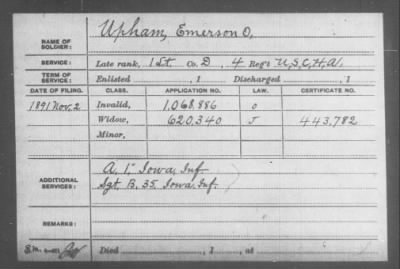 NAME OF SOLDIER: Upham, Emerson O.
SERVICE: Late rank, 1 Lt. Co. D, 4 Reg't U.S.C.H.A.
TERM OF SERVICE: Enlisted , 1 Discharged , 1
DATE OF FILING. CLASS. APPLICATION NO. LAW. CERTIFICATE NO.
1891 Nov. 2 Invalid, 1,068,886 O
Widow, 620,340 J 443,782
Minor,
ADDITIONAL SERVICES: A. 1, Iowa Inf
Sgt. B. 35 Iowa Inf.
REMARKS:
Died , 1 , at